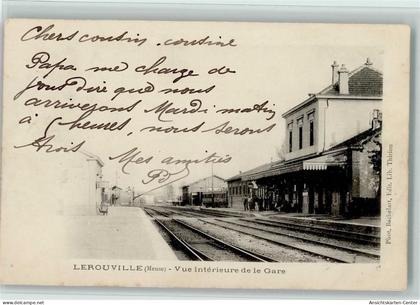 Chers cousin, cousine
Papa me charge de
vous dire que nous
arriverons Mardi matin
à 9 heures, nous serons
trois Mes amitiés
LEROUVILLE (Meuse) - Vue Intérieure de la Gare
Edit. Lib.
© Ansichtskarten-Center
www.ansichtskarten-center.de